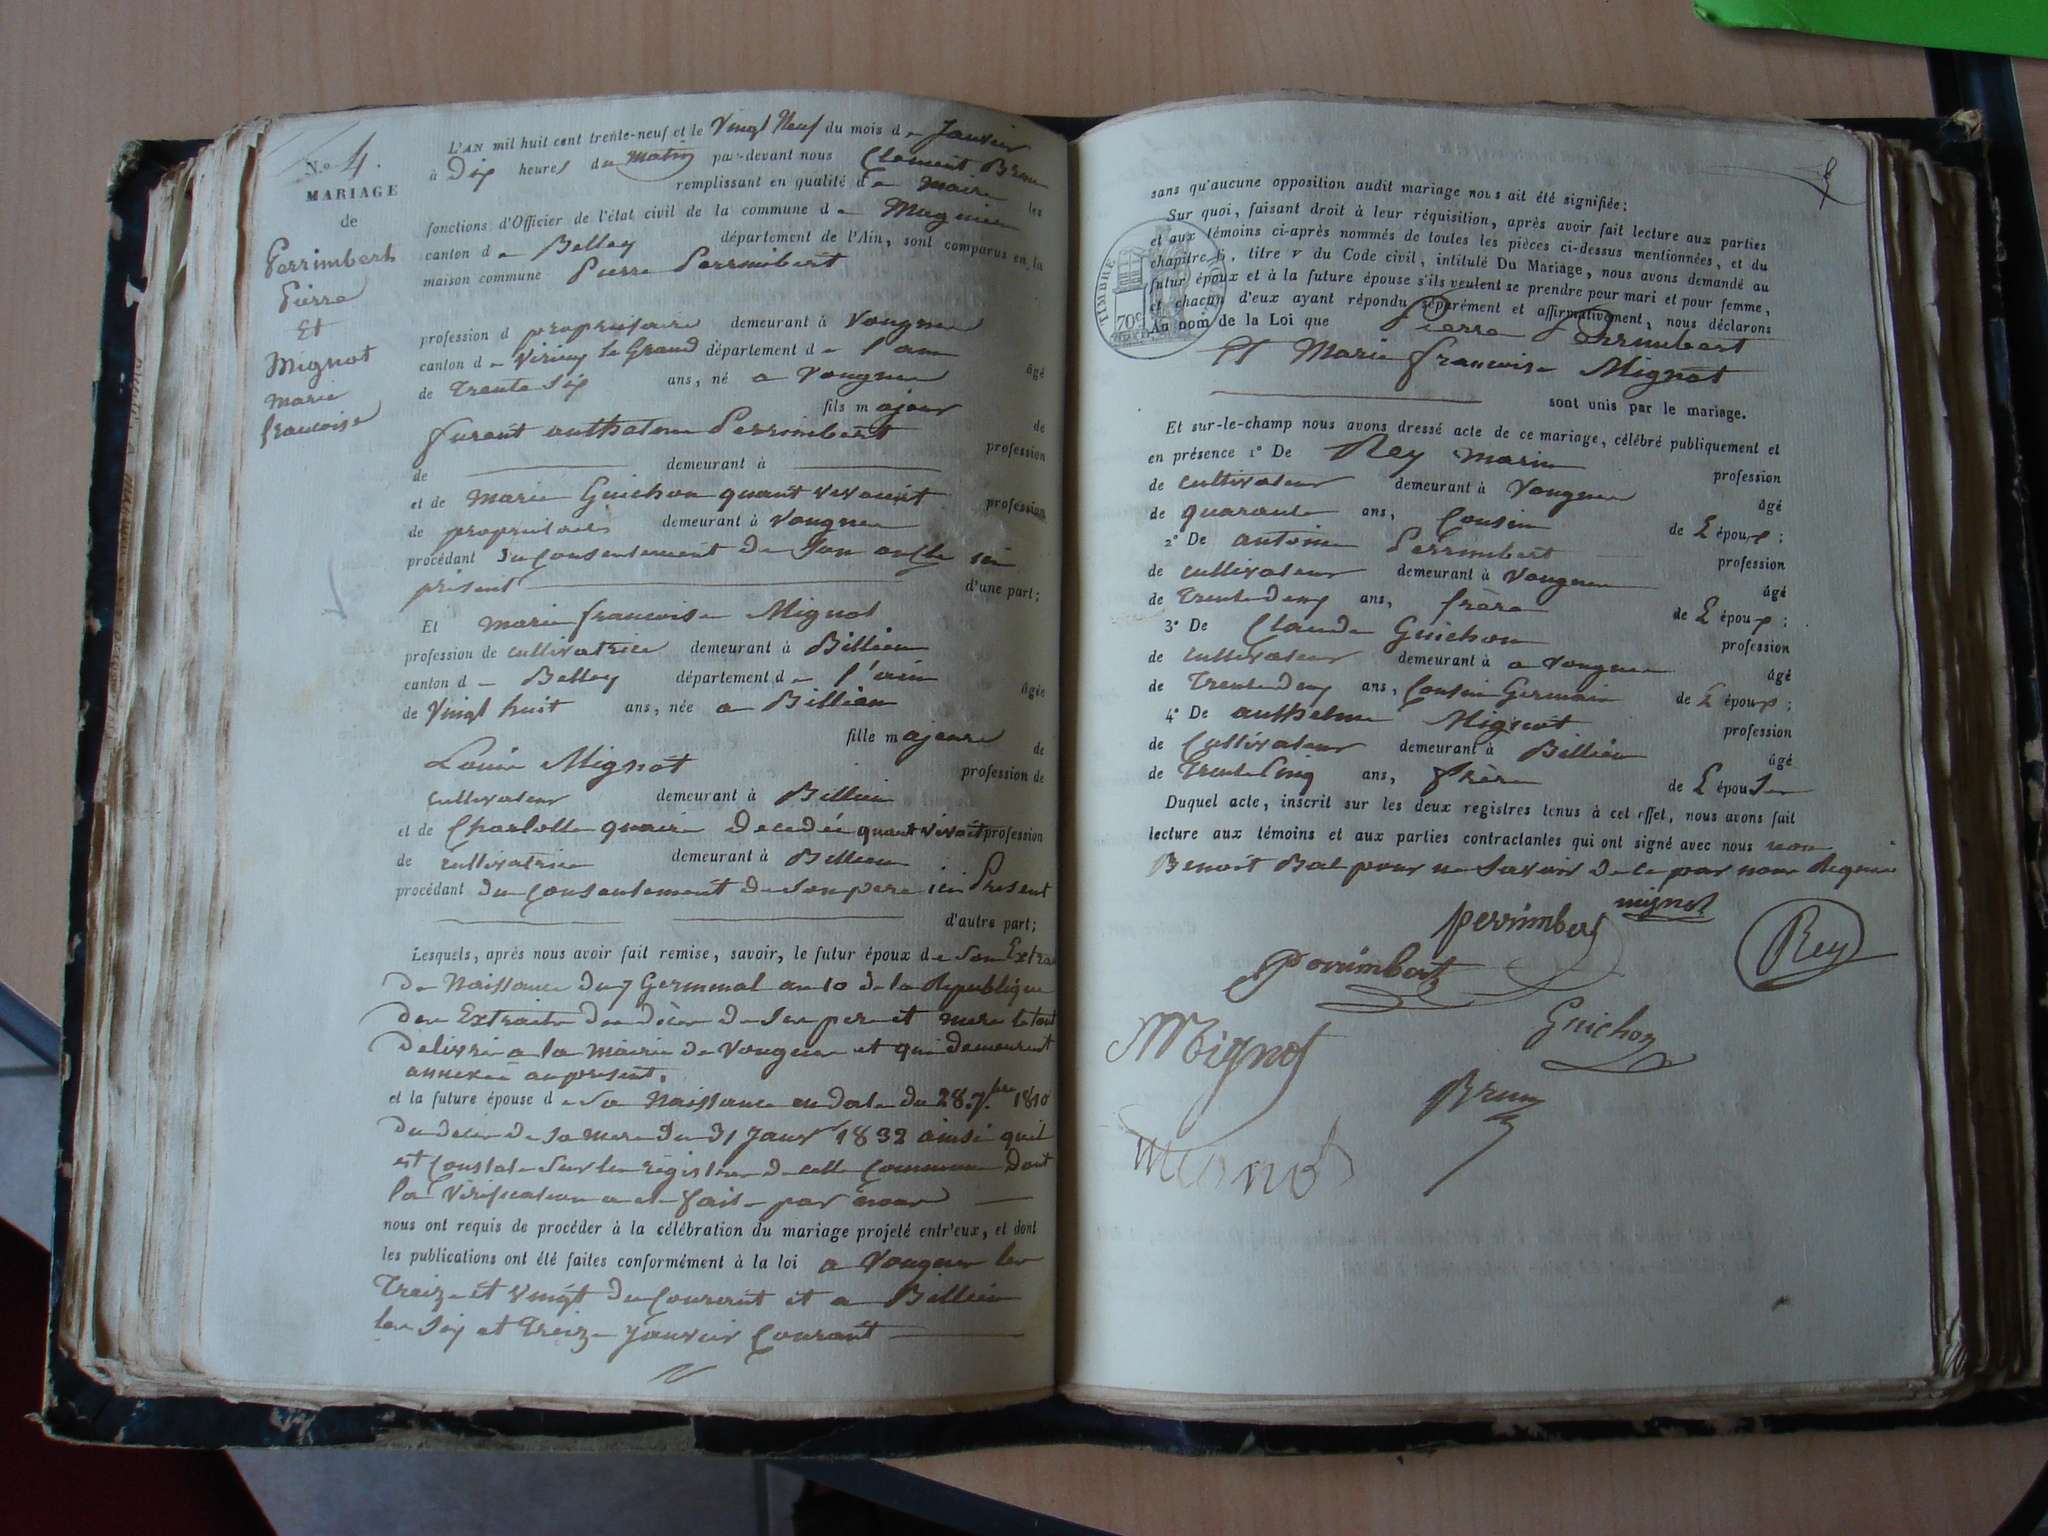 N.o 4.
MARIAGE
de
Perrimbert
Pierre
Et
Mignot
marie
francoise
L'AN mil huit cent trente-neuf et le Vingt Neuf du mois de Janvier
à Dix heures du Matin par-devant nous Clement Brun
remplissant en qualité de Maire les
fonctions d'Officier de l'état civil de la commune de Magnieu
canton de Belley département de l'Ain, sont comparus en la
maison commune Pierre Perrimbert
profession d propriétaire demeurant à Vongnes
canton de Virieu le Grand département de l'ain âgé
de Trente Six ans, né a Vongnes
fils majeur de
furent anthelme Perrimbert profession
de demeurant à
et de Marie Guichon quant vivaint profession
de propriétaires demeurant à Vongnes
procédant du Consentement de Son oncle ici
présent d'une part;
Et marie francoise Mignot
profession de cultivatrice demeurant à Billieu
canton de Belley département de l'ain âgée
de Vingt huit ans, née a Billieu
fille majeure de
Louis Mignot profession de
cultivateur demeurant à Billieu
et de Charlotte decedée quant vivait profession
de cultivatrice demeurant à Billieu
procédant du Consentement de Son pere ici Present
d'autre part;
Lesquels, après nous avoir fait remise, savoir, le futur époux de Son Extrai
De Naissance Du 7 Germinal an 10 de la Republique
des Extraits des décès de Ses pere et mere le tout
Delivré a la Mairie de Vongnes et qui demeurent
annexée au present.
et la future épouse de Sa Naissance en date du 28. 7.bre 1810
du décès de Sa mere du 31 Janvr 1832 ainsi quil
est Constaté Sur les régistres de cette Commune dont
la Vérification a été faite par nous
nous ont requis de procéder à la célébration du mariage projeté entr'eux, et dont
les publications ont été faites conformément à la loi a Vongnes les
Treize et vingt du Courant et a Billieu
les Six et Treize Janvier Courant
sans qu'aucune opposition audit mariage nous ait été signifiée;
Sur quoi, faisant droit à leur réquisition, après avoir fait lecture aux parties
et aux témoins ci-après nommés de toutes les pièces ci-dessus mentionnées, et du
chapitre 6, titre v du Code civil, intitulé Du Mariage, nous avons demandé au
futur époux et à la future épouse s'ils veulent se prendre pour mari et pour femme,
et chacun d'eux ayant répondu séparément et affirmativement, nous déclarons
Au nom de la Loi que Pierre Perrimbert
Et Marie francoise Mignot
sont unis par le mariage.
TIMBRE
70c
Et sur-le-champ nous avons dressé acte de ce mariage, célébré publiquement et
en présence 1° De Rey Marin profession
de cultivateur demeurant à Vongnes âgé
de quarante ans, Cousin de L'époux;
2° De antoine Perrimbert profession
de cultivateur demeurant à Vongnes âgé
de Trente deux ans, frère de L'époux;
3° De Claude Guichon profession
de cultivateur demeurant à a Vongnes âgé
de Trente deux ans, Cousin Germain de L'époux;
4° De anthelme Mignot profession
de Cultivateur demeurant à Billieu âgé
de Trente Cinq ans, frère de L'épouse
Duquel acte, inscrit sur les deux registres tenus à cet effet, nous avons fait
lecture aux témoins et aux parties contractantes qui ont signé avec nous non
Benoit Bal pour ne Savoir de ce par nous Requis
mignot
perrimbert
Rey
perrimbert
Guichon
Mignot
Brun